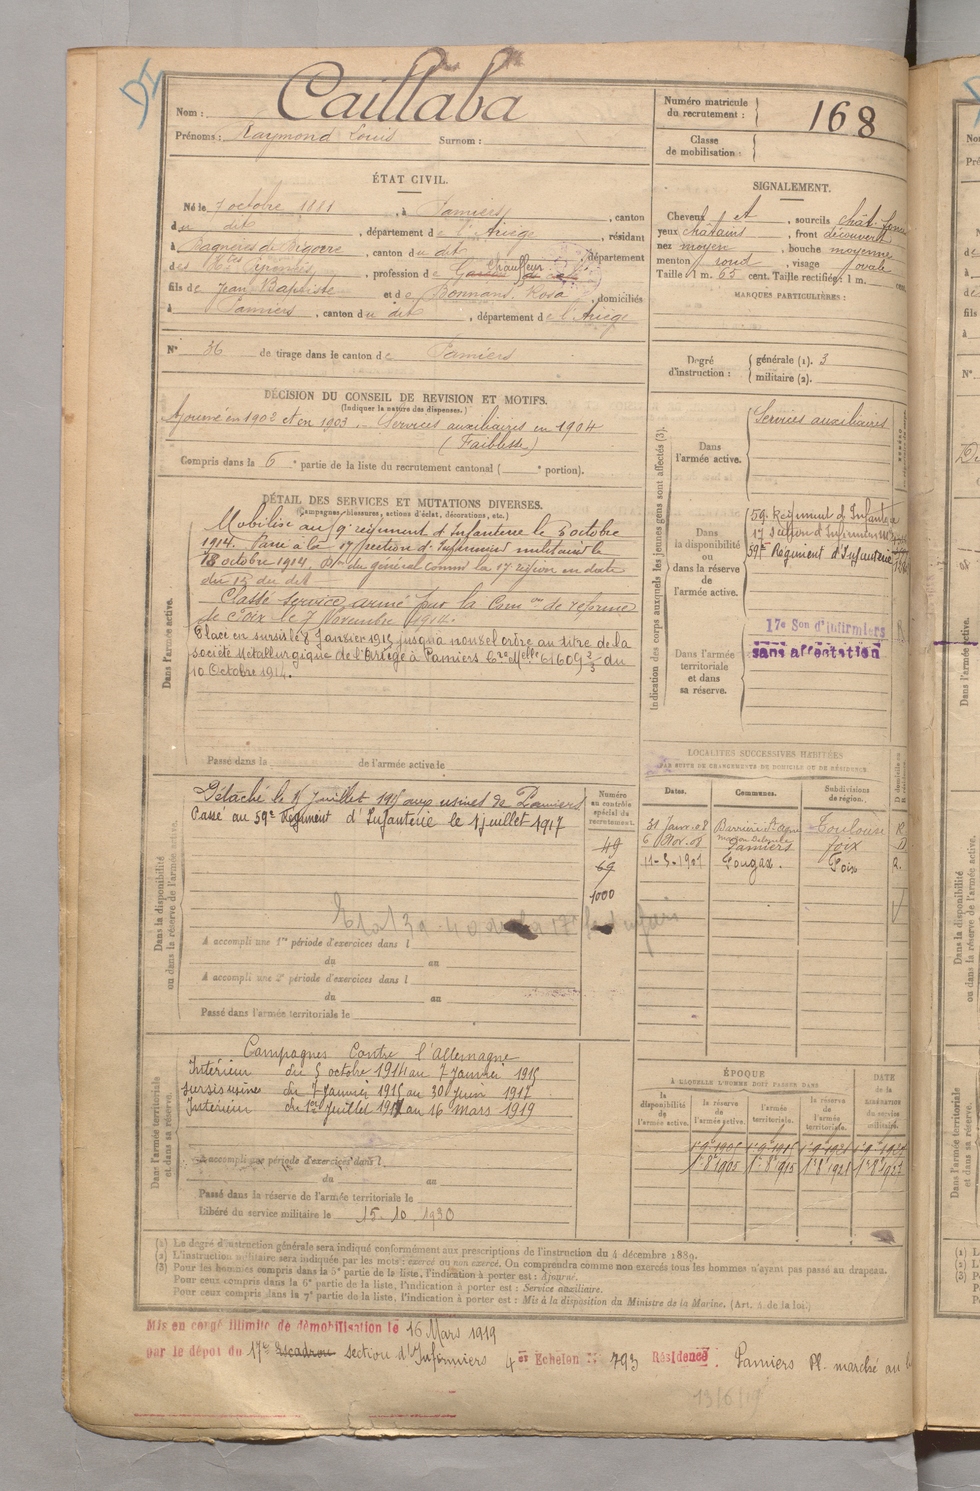 Nom : Caillaba
Prénoms : Raymond Louis Surnom :
Numéro matricule
du recrutement : 168
Classe
de mobilisation :
ÉTAT CIVIL.
Né le 7 octobre 1881, à Pamiers, canton
du dit, département de l'Ariège, résidant
à Bagnères de Bigorre, canton du dit, département
des Htes Pyrénées, profession de Chauffeur
fils de Jean Baptiste et de Bonnans Rosa, domiciliés
à Pamiers, canton du dit, département de l'Ariège
N° 36 de tirage dans le canton de Pamiers
SIGNALEMENT.
Cheveux et, sourcils chât. foncé
yeux châtains, front découvert
nez moyen, bouche moyenne
menton rond, visage ovale
Taille 1 m. 65 cent. Taille rectifiée : 1 m. cent.
MARQUES PARTICULIÈRES :
Degré
d'instruction :
générale (1). 3
militaire (2).
DÉCISION DU CONSEIL DE REVISION ET MOTIFS.
(Indiquer la nature des dispenses.)
Ajourné en 1902 et en 1903. Services auxiliaires en 1904
(Faiblesse)
Compris dans la 6e partie de la liste du recrutement cantonal ( e portion).
DÉTAIL DES SERVICES ET MUTATIONS DIVERSES.
(Campagnes, blessures, actions d'éclat, décorations, etc.)
Dans l'armée active.
Mobilisé au 9e régiment d'Infanterie le 5 octobre
1914. Passé à la 17e section d'Infirmiers militaires le
18 octobre 1914. du général Comm' la 17 région en date
du 15 du dit
Classé service armé par la Comon de réforme
de Foix le 7 Novembre 1914.
Placé en sursis le 8 Janvier 1915 jusqu'à nouvel ordre au titre de la
Société Métallurgique de l'Ariège à Pamiers 61609 2/3 du
10 Octobre 1914.
Passé dans la de l'armée active le
Indication des corps auxquels les jeunes gens sont affectés (3).
Dans
l'armée active.
Services auxiliaires
Dans
la disponibilité
ou dans la réserve
de
l'armée active.
59e Régiment d'Infanterie
17 Section d'Infirmiers
59e Régiment d'Infanterie
Dans l'armée
territoriale
et dans
sa réserve.
17e Son d'Infirmiers
sans affectation
Dans la disponibilité
ou dans la réserve de l'armée active.
Détaché le juillet 1915 aux usines de Pamiers
Passé au 59e Régiment d'Infanterie le 1 juillet 1917
Numéro
au contrôle
spécial du
recrutement.
49
69
1000
A accompli une 1re période d'exercices dans l
du au
A accompli une 2e période d'exercices dans l
du au
Passé dans l'armée territoriale le
LOCALITÉS SUCCESSIVES HABITÉES
PAR SUITE DE CHANGEMENTS DE DOMICILE OU DE RÉSIDENCE
Dates. Communes. Subdivisions
de région.
31 Janv. 08 Toulouse R
6 Nov. 08 Pamiers Foix D
11-3-1909 Foix R.
Dans l'armée territoriale
et dans sa réserve.
Campagnes Contre l'Allemagne
Intérieur du 5 octobre 1914 au 7 Janvier 1915
sursis usine du 7 Janvier 1915 au 30 Juin 1917
Intérieur du 1er Juillet 1917 au 16 mars 1919
A accompli une période d'exercices dans l
du au
Passé dans la réserve de l'armée territoriale le
Libéré du service militaire le 15-10 1930
ÉPOQUE
À LAQUELLE L'HOMME DOIT PASSER DANS
DATE
de la
LIBÉRATION
du service
militaire.
la
disponibilité
de
l'armée active.
la réserve
de
l'armée active.
l'armée
territoriale.
la réserve
de
l'armée
territoriale.
(1) Le degré d'instruction générale sera indiqué conformément aux prescriptions de l'instruction du 4 décembre 1889.
(2) L'instruction militaire sera indiquée par les mots : exercé ou non exercé. On comprendra comme non exercés tous les hommes n'ayant pas passé au drapeau.
(3) Pour les hommes compris dans la 5e partie de la liste, l'indication à porter est : Ajourné.
Pour ceux compris dans la 6e partie de la liste, l'indication à porter est : Service auxiliaire.
Pour ceux compris dans la 7e partie de la liste, l'indication à porter est : Mis à la disposition du Ministre de la Marine. (Art. 5 de la loi.)
Mis en congé illimité de démobilisation le 16 Mars 1919
par le dépôt du 17e Escadron section d'Infirmiers 4er Echelon N° 793 Résidence Pamiers Pl. marché au
13/6/19